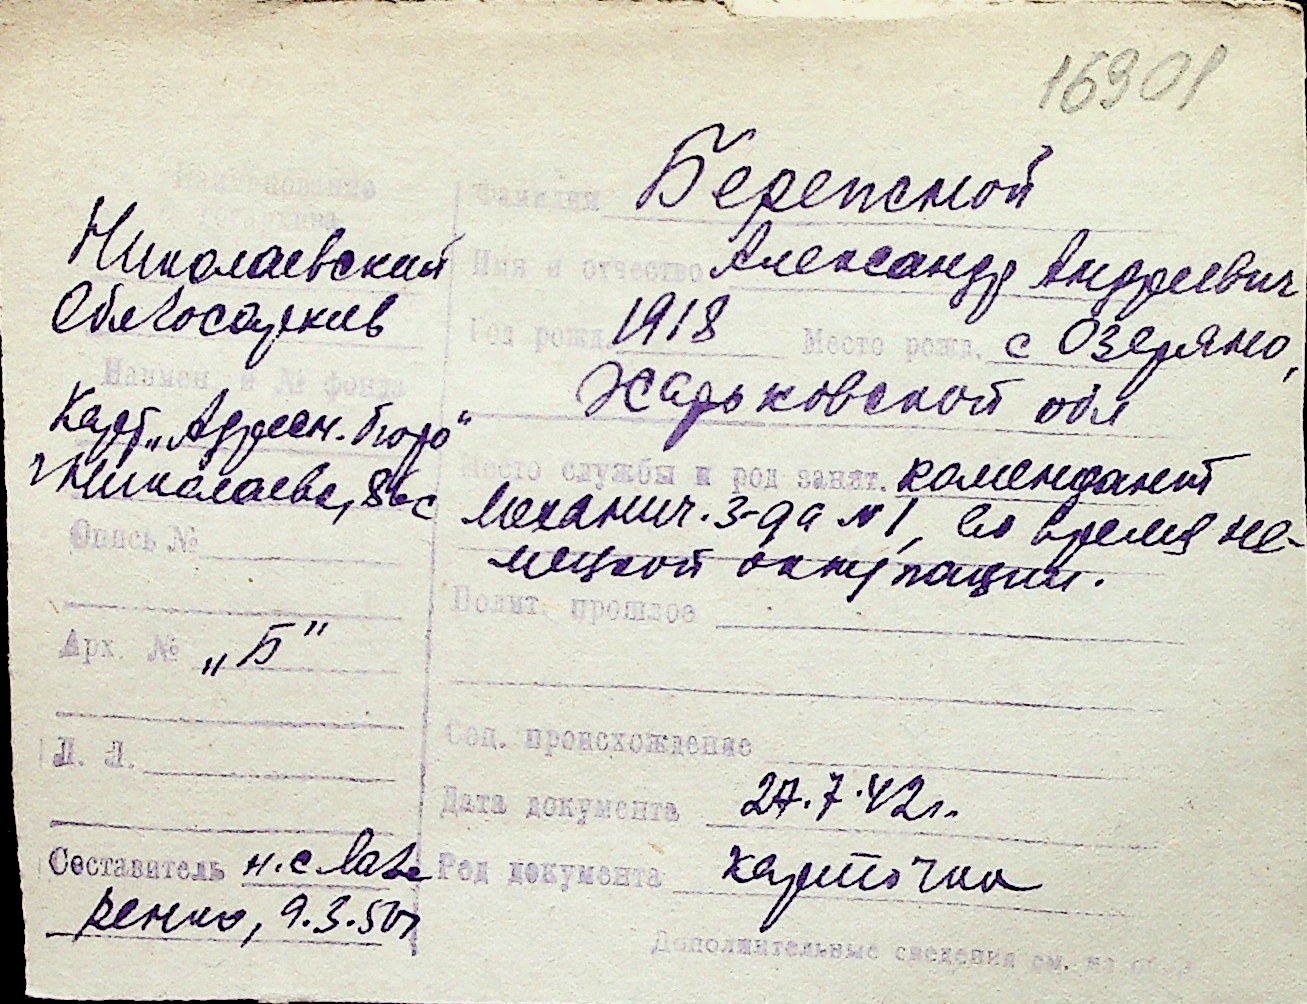 16901
Наименование
госархива
Николаевский
Облгосархив
Наимен. и № фонда
Карт „Адресн. бюро"
г Николаева,
Опись №
Арх. № „Б"
Л. Л.
Составитель н.с
ренко, 9.3.50г
Фамилия Бережной
Имя и отчество Александр Андреевич
Год рожд. 1918 Место рожд. с Озеряно,
Харьковской обл
Место службы и род занят. комендант
механич. з-да №1, во время не-
мецкой оккупации.
Полит. прошлое
Соц. происхождение
Дата документа 27.7.42г.
Род документа карточка
Дополнительные сведения см. на об.